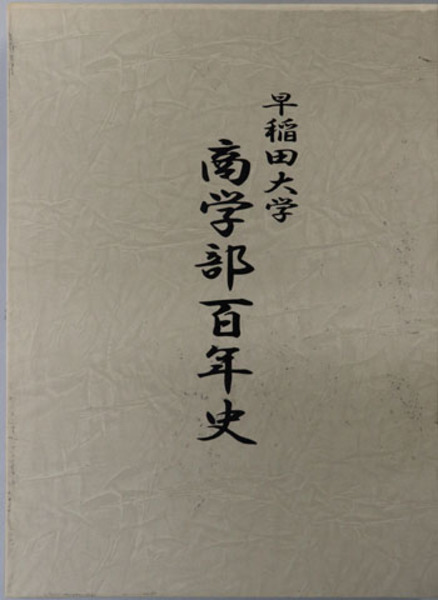 早稲田大学
商学部百年史